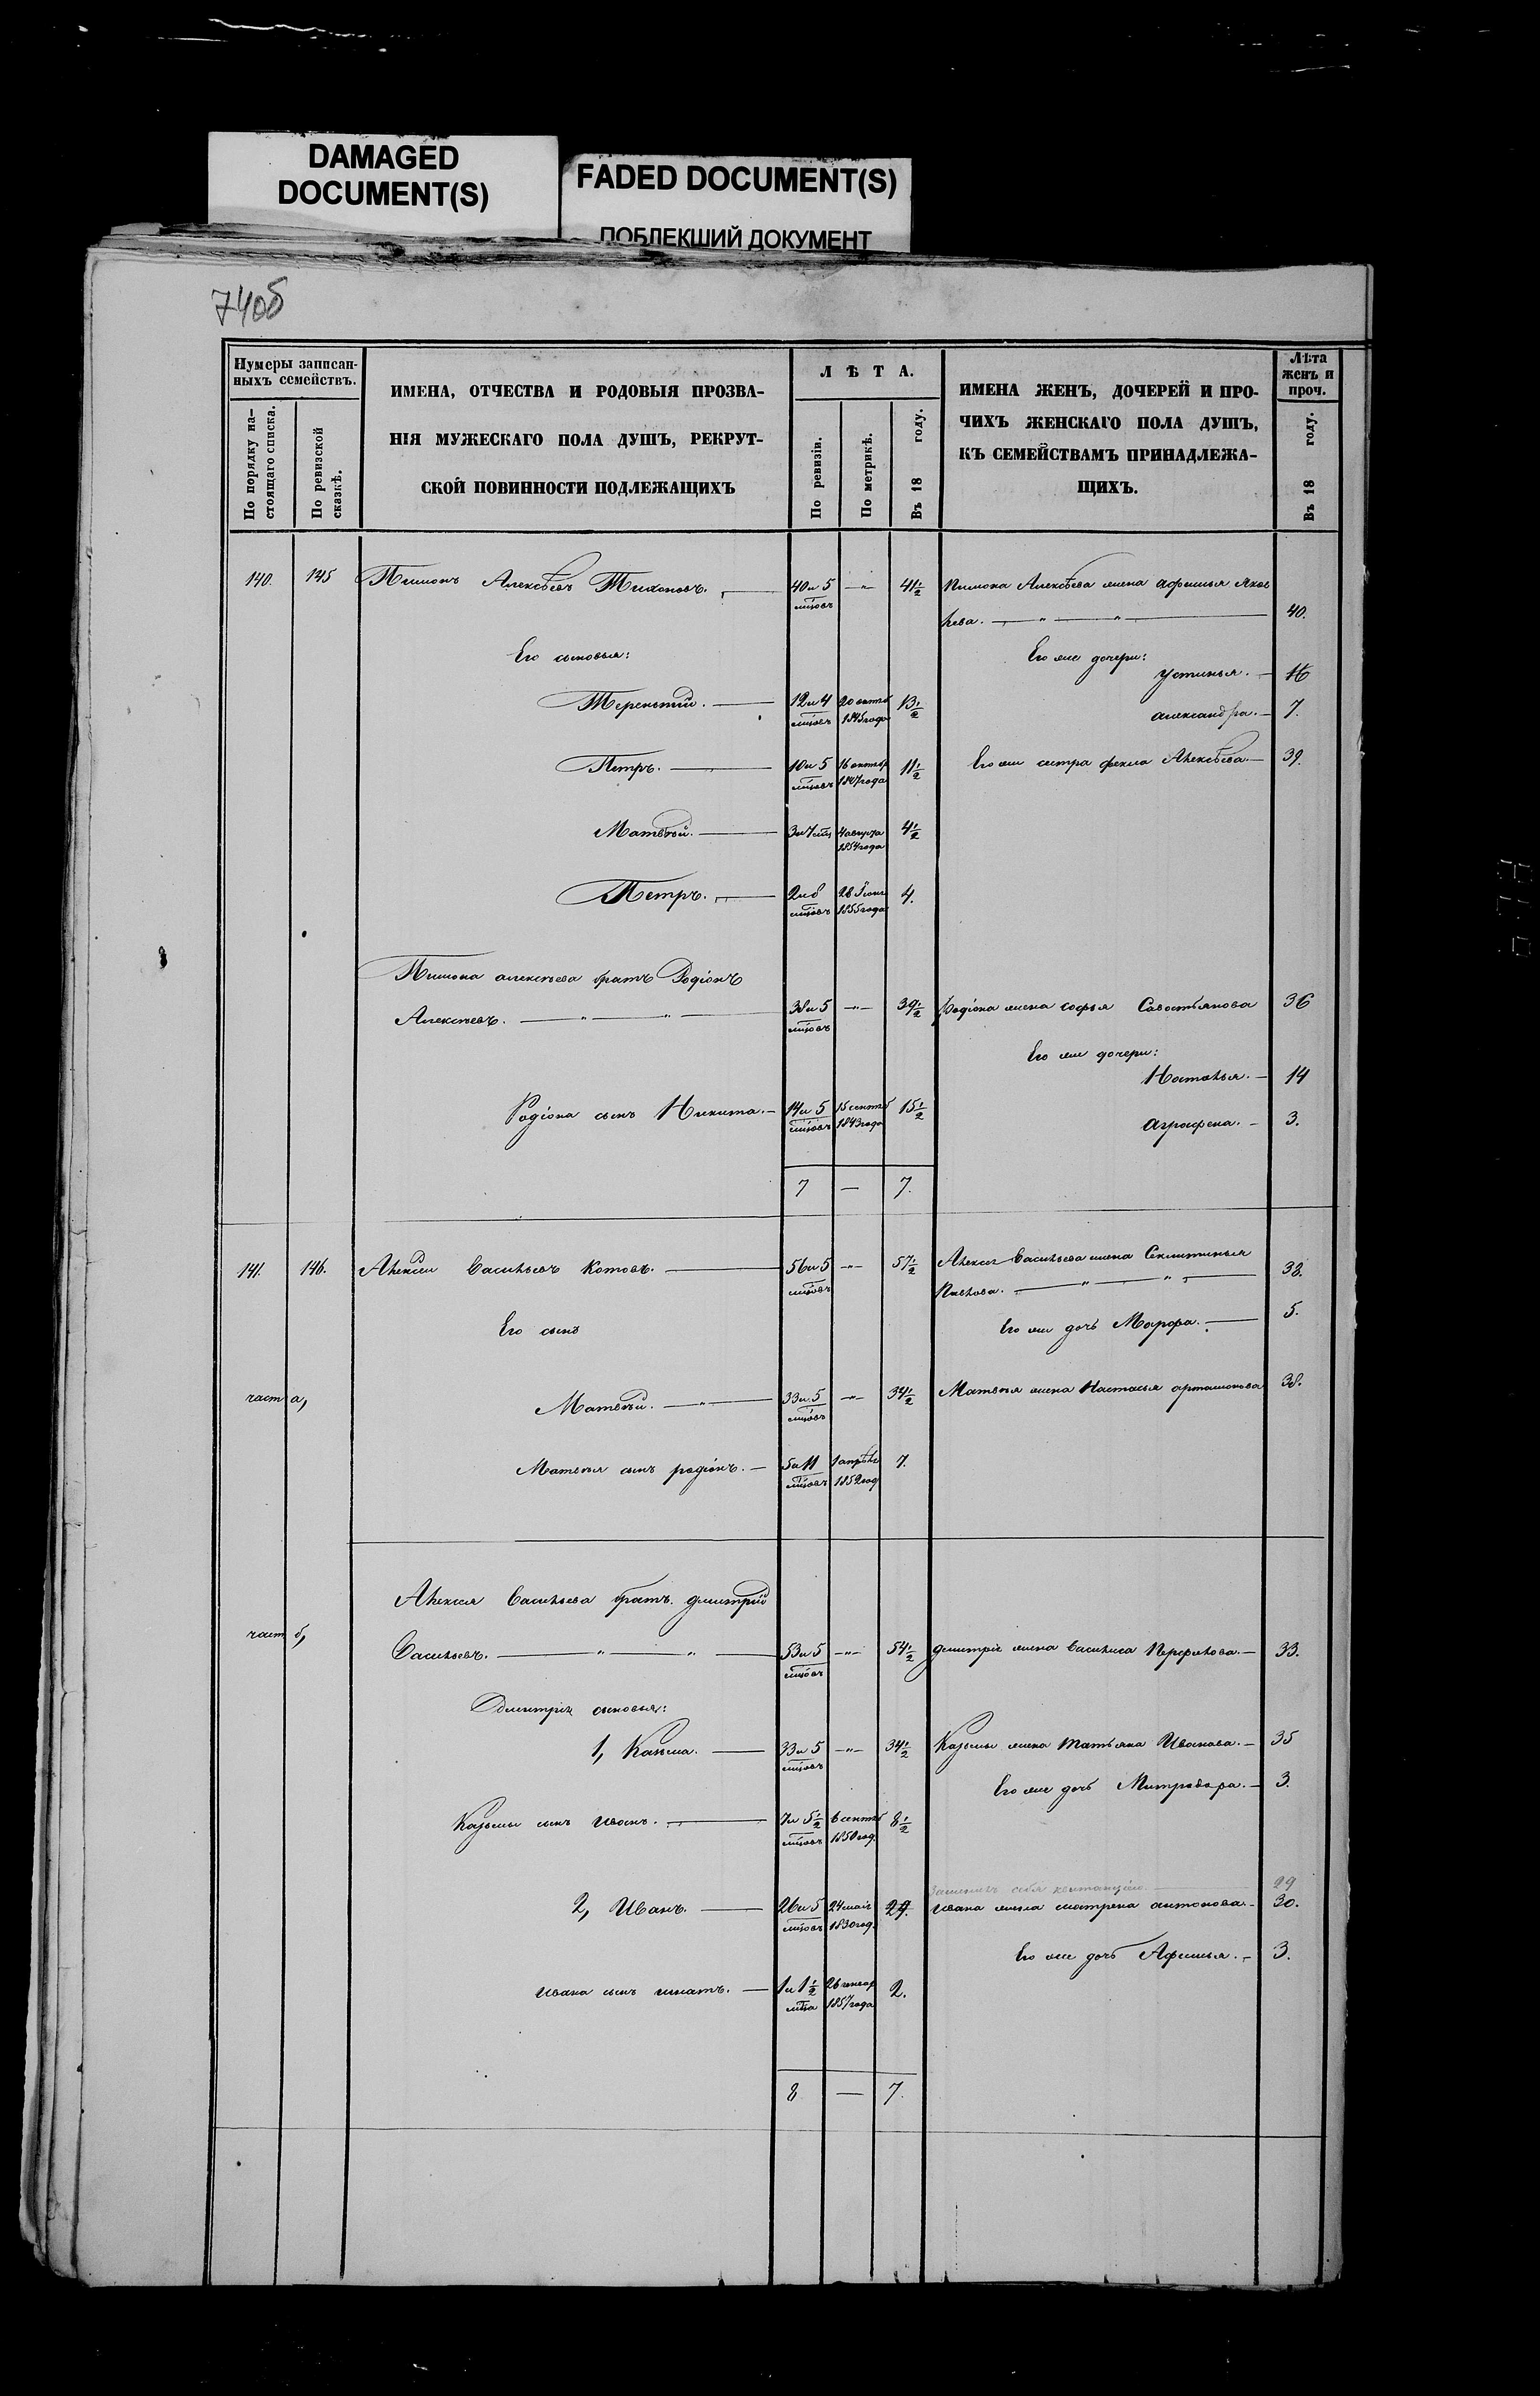 DAMAGED
DOCUMENT(S)
FADED DOCUMENT(S)
ПОБЛЕКШИЙ ДОКУМЕНТ
74об
Нумеры записан-
ныхъ семействъ.
По порядку на-
стоящаго списка.
По ревизской
сказкѣ.
ИМЕНА, ОТЧЕСТВА И РОДОВЫЯ ПРОЗВА-
НІЯ МУЖЕСКАГО ПОЛА ДУШЪ, РЕКРУТ-
СКОЙ ПОВИННОСТИ ПОДЛЕЖАЩИХЪ
ЛѢТА.
По ревизіи.
По метрикѣ.
Въ 18 году.
ИМЕНА ЖЕНЪ, ДОЧЕРЕЙ И ПРО-
ЧИХЪ ЖЕНСКАГО ПОЛА ДУШЪ,
КЪ СЕМЕЙСТВАМЪ ПРИНАДЛЕЖА-
ЩИХЪ.
Лѣта
женъ и
проч.
Въ 18 году.
140. 145 Пимонъ Алексѣевъ Тихоновъ. 40 и 5 мцовъ — 41½ Пимона Алексѣева жена Афимья Яков
лева. 40.
Его сыновья: Его же дочери:
Устинья. 16
Терентий. 12 и 4 мцовъ 20 октяб 1845 года 13½ Александра. 7.
Петръ. 10 и 5 мцовъ 16 октяб 1847 года 11½ Его же сестра Фекла Алексѣева 39.
Матвѣй. 3 и 7 мц 4 августа 1854 года 4½
Петръ. 2 и 8 мцовъ 28 Іюня 1855 года 4.
Пимона Алексѣева братъ Родіонъ
Алексѣевъ. 38 и 5 мцовъ — 39½ Родіона жена Софья Савостьянова 36
Его же дочери:
Наталья. 14
Родіона сынъ Никита. 14 и 5 мцовъ 15 сентяб 1843 года 15½ Аграфена. 3.
7 — 7.
141. 146. Алексѣй Васильевъ Котовъ. 56 и 5 мцовъ — 57½ Алексѣя Васильева жена Секлитинья
Павлова. 38.
Его сынъ Его же дочь Марфа. 5.
часть а, Матвѣй. 33 и 5 мцовъ — 34½ Матвѣя жена Настасья Артамонова 38.
Матвѣя сынъ Родіонъ. 5 и 11 мцовъ 1 апрѣля 1852 год 7.
Алексѣя Васильева братъ Дмитрій
часть б, Васильевъ. 53 и 5 мцовъ — 54½ Дмитрія жена Василиса Перфилова. 33.
Дмитрія сыновья:
1, Казьма. 33 и 5 мцовъ — 34½ Казьмы жена Татьяна Иванова. 35
Его же дочь Митродора. 3.
Казьмы сынъ Иванъ. 7 и 5½ мцовъ 6 сентяб 1850 год. 8½
квитанцію. 29
2, Иванъ. 26 и 5 мцовъ 24 мая 1830 год. 29. Ивана жена Матрена Антонова. 30.
Его же дочь Афимья. 3.
Ивана сынъ Игнатъ. 1 и 1½ мца 26 генвар 1857 года 2.
8 — 7.